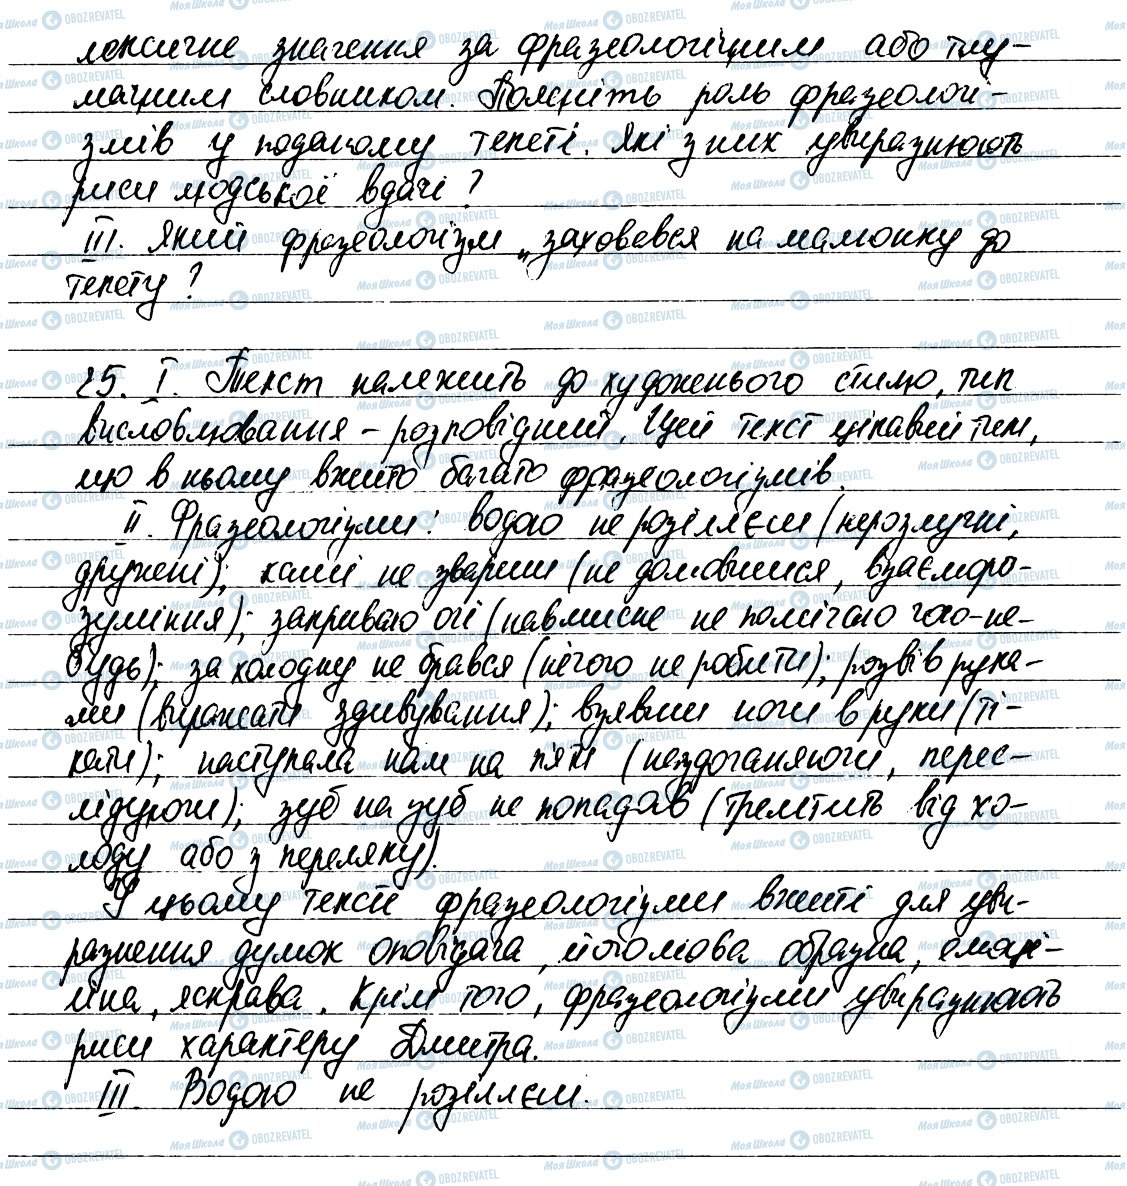 лексичне значення за фразеологічним або тлу-
мачним словником. Поясніть роль фразеологі-
змів у поданому тексті. Які з них увиразнюють
риси людської вдачі?
III. Який фразеологізм „заховався на малюнку до
тексту?
25. I. Текст належить до художнього стилю, тип
висловлювання – розповідний. Цей текст цікавий тим,
що в ньому вжито багато фразеологізмів.
II. Фразеологізми: водою не розіллєш (нерозлучні,
дружені); каші не звариш (не домовишся, взаєморо-
зуміння); закриваю очі (навмисне не помічаю чого-не-
будь); за холодну не брався (нічого не робити); розвів рука-
ми (виражати здивування); взявши ноги в руки (ті-
кати); наступала нам на п'яти (наздоганяючи, перес-
лідуючи); зуб на зуб не попадав (тремтить від хо-
лоду або з переляку).
У цьому тексті фразеологізми вжиті для уви-
разнення думок оповідача, його мова образна, емоці-
йна, яскрава. Крім того, фразеологізми увиразнюють
риси характеру Дмитра.
III. Водою не розіллєш.